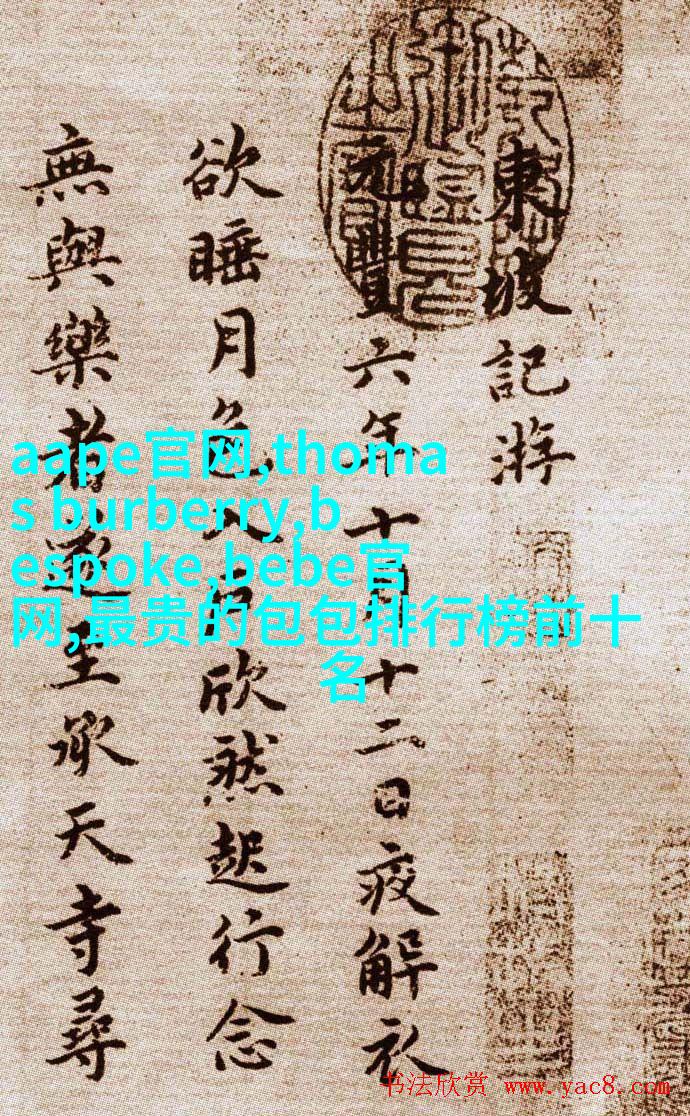 東坡記游
元豐六年十月十二日夜解衣
欲睡月色入户欣然起行念
無與樂者遂至承天寺尋
aape官网,thoma
s burberry,b
espoke,bebe官
网,最贵的包包排行榜前十
名
书法欣赏 www.yac8.com